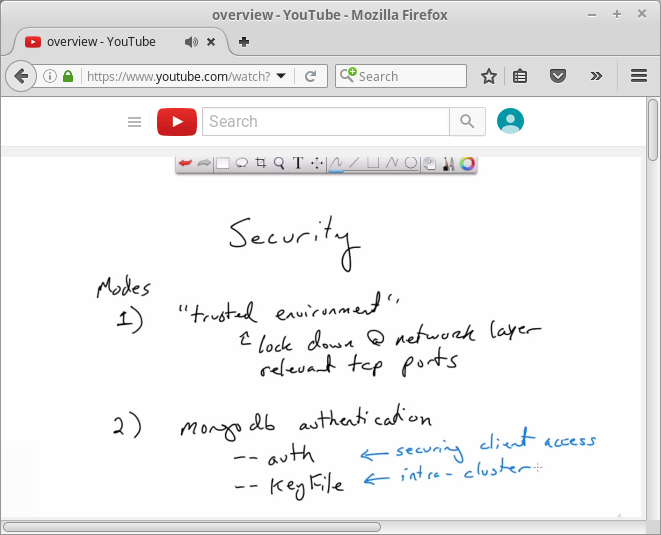 overview - YouTube - Mozilla Firefox
overview - YouTube
https://www.youtube.com/watch?
Search
Search
T
Security
Modes
1) "trusted environment"
lock down @ network layer
relevant tcp ports
2) mongodb authentication
-- auth ← securing client access
-- keyFile ← intra-cluster